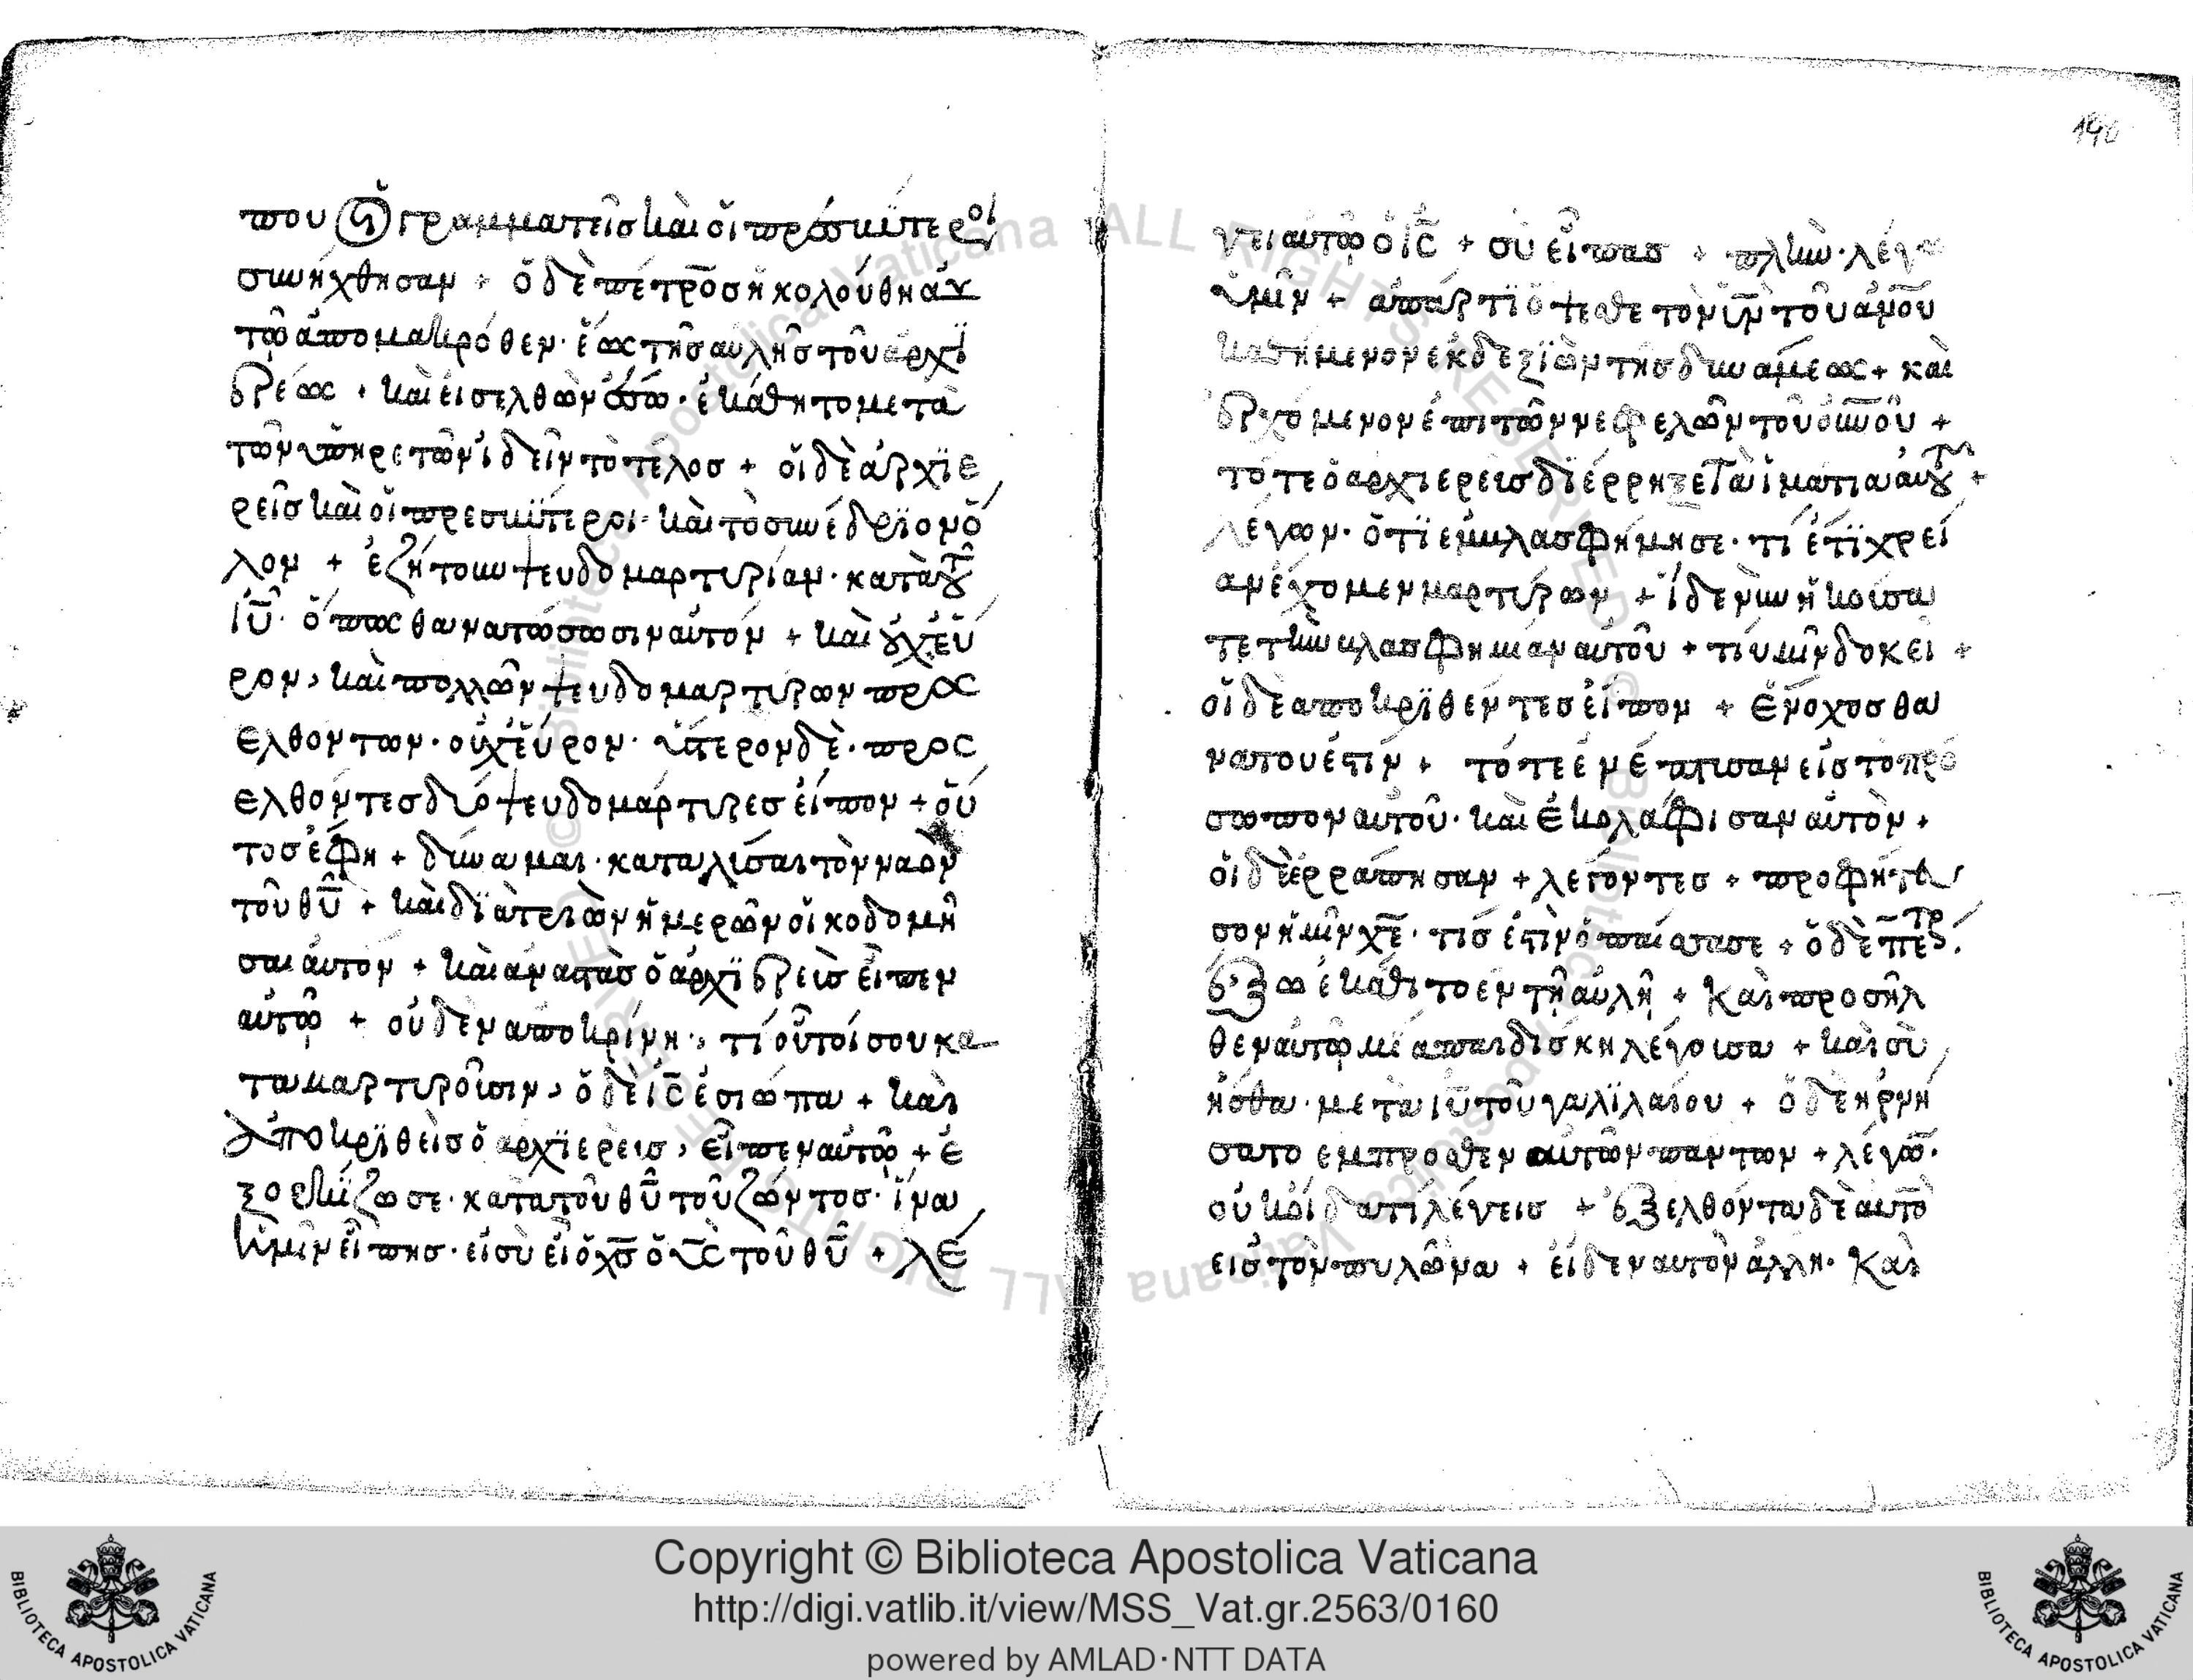 που οἱ γραμματεῖσ καὶ οἱ πρεσβύτεροι
συνήχθησαν + ὁ δὲ πέτροσ ἠκολούθη αυ
τῶ ἀπομακρόθεν· ἕως τῆσ αὐλῆσ τοῦ ἀρχι
ερέως + καὶ εἰσελθὼν ἔσω· ἐκάθητο μετὰ
τῶν ὑπηρετῶν ἰδεῖν τὸ τέλοσ + οἱ δὲ ἀρχιε
ρεῖσ καὶ οἱ πρεσβύτεροι· καὶ τὸ συνέδριον ὅ
λον + ἐζήτουν ψευδομαρτυρίαν· κατὰ τοῦ
ἰῦ· ὅπως θανατώσωσιν αὐτόν + καὶ οὐχ εὗ
ρον, καὶ πολλῶν ψευδομαρτύρων προς
ελθόντων· οὐχ εὗρον· ὕστερον δὲ· προς
ελθόντεσ δύο ψευδομάρτυρεσ εἶπον + οὗ
τοσ ἔφη + δύναμαι· καταλύσαι τὸν ναὸν
τοῦ θῦ + καὶ διὰ τριῶν ἡμερῶν οἰκοδομῆ
σαι αὐτόν + καὶ ἀναστὰσ ὁ ἀρχιερεὺσ εἶπεν
αὐτῶ + οὐδὲν ἀποκρίνη·, τί οὗτοί σου κα
ταμαρτυροῦσιν, ὁ δὲ ἰς ἐσιώπα + καὶ
ἀποκριθεὶσ ὁ ἀρχιερεὺσ, εἶπεν αὐτῶ + ἐ
ξορκίζω σε· κατὰ τοῦ θῦ τοῦ ζῶντοσ· ἵνα
ἡμῖν εἴπησ· εἰ σὺ εἶ ὁ χσ ὁ υς τοῦ θῦ + λέ
γει αὐτῶ ὁ ἰς + σὺ εἶπασ + πλὴν· λέγω
ὑμῖν + ἀπάρτι ὄψεσθε τὸν υν τοῦ ανου
καθήμενον ἐκ δεξιῶν τῆσ δυνάμεως + καὶ
ἐρχόμενον ἐπὶ τῶν νεφελῶν τοῦ οὐνοῦ +
τότε ὁ ἀρχιερεὺσ διέρρηξε τὰ ἱμάτια αὐτοῦ +
λέγων· ὅτι ἐβλασφήμησε· τί ἔτι χρεί
αν ἔχομεν μαρτύρων + ἴδε νῦν ἠκούσα
τε τὴν βλασφημίαν αὐτοῦ + τί ὑμῖν δοκεῖ +
οἱ δὲ ἀποκριθέντεσ εἶπον + ἔνοχοσ θα
νάτου ἐστίν + τότε ἐνέπτυσαν εἰσ τὸ πρό
σωπον αὐτοῦ· καὶ ἐκολάφισαν αὐτὸν +
οἱ δὲ ἐρράπησαν + λέγοντεσ + προφήτευ
σον ἡμῖν χε· τίσ ἐστὶν ὁ παίσασ σε + ὁ δὲ πέτρος
ἔξω ἐκάθιτο ἐν τῆ αὐλῆ + Καὶ προσῆλ
θεν αὐτῶ μία παιδίσκη λέγουσα + καὶ σὺ
ἦσθα· μετὰ ἰῦ τοῦ γαλιλαίου + ὁ δὲ ἠρνή
σατο ἔμπροσθεν αὐτῶν πάντων + λέγω·
οὐκ οἶδα τί λέγεισ + ἐξελθόντα δὲ αὐτὸ
εἰσ τὸν πυλῶνα + εἶδεν αὐτὸν ἄλλη· Καὶ
190
Copyright © Biblioteca Apostolica Vaticana
http://digi.vatlib.it/view/MSS_Vat.gr.2563/0160
powered by AMLAD·NTT DATA
BIBLIOTECA APOSTOLICA VATICANA
BIBLIOTECA APOSTOLICA VATICANA